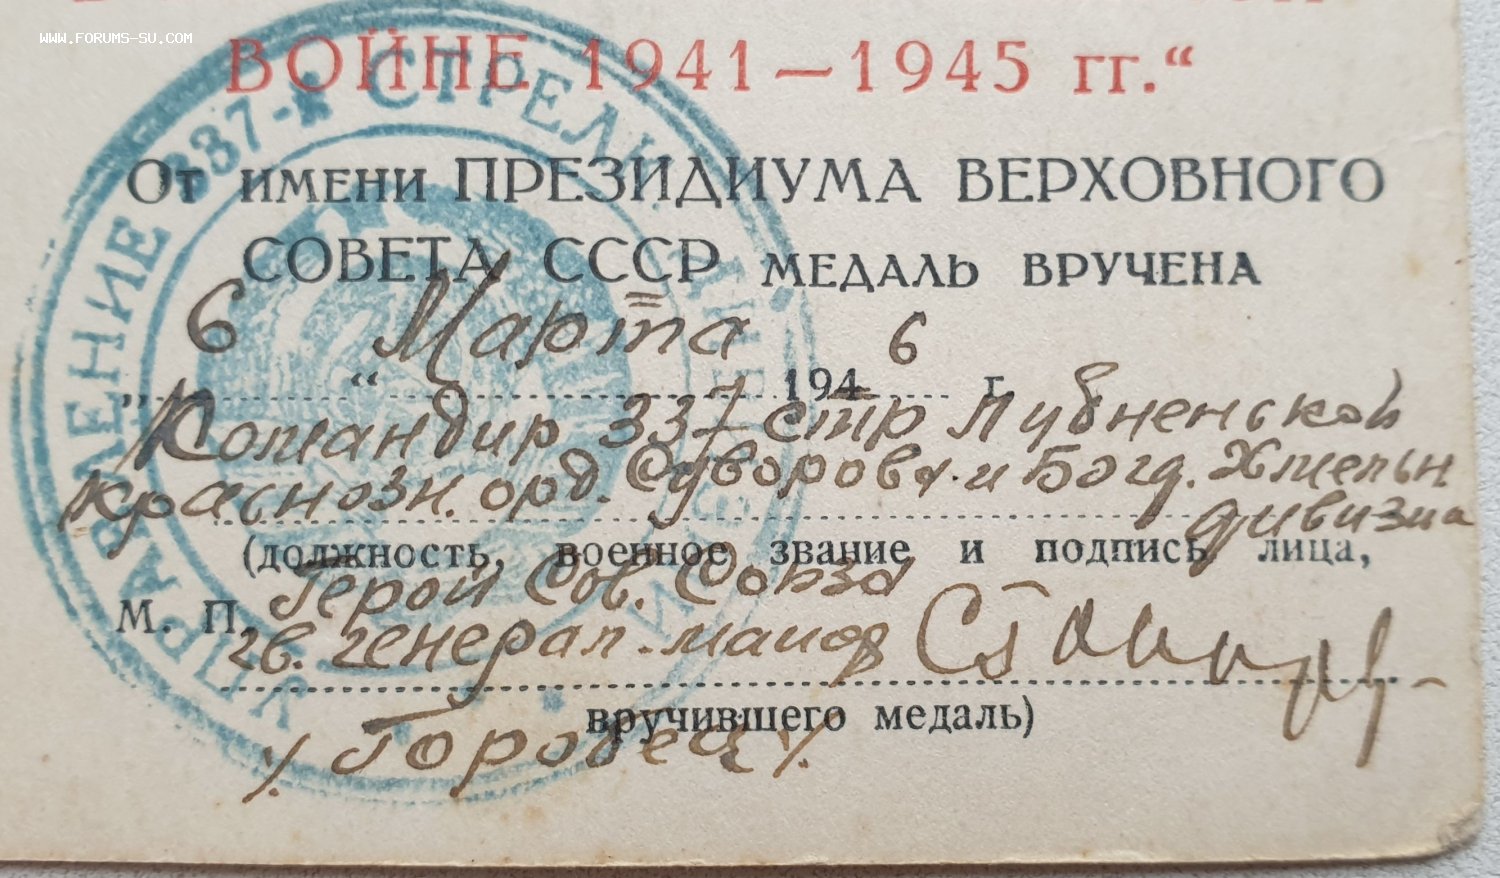 WWW.FORUMS-SU.COM
ВОЙНЕ 1941—1945 гг.“
От имени ПРЕЗИДИУМА ВЕРХОВНОГО
СОВЕТА СССР МЕДАЛЬ ВРУЧЕНА
„6“ Марта 1946 г.
Командир 337 стр Лубненской
Краснозн. орд. Суворова и Богд. Хмельн
дивизиа
(должность, военное звание и подпись лица,
Герой Сов. Союза
М. П. гв. генерал-майор
вручившего медаль)
/Горобец/.
УПРАВЛЕНИЕ 337-Й СТРЕЛК